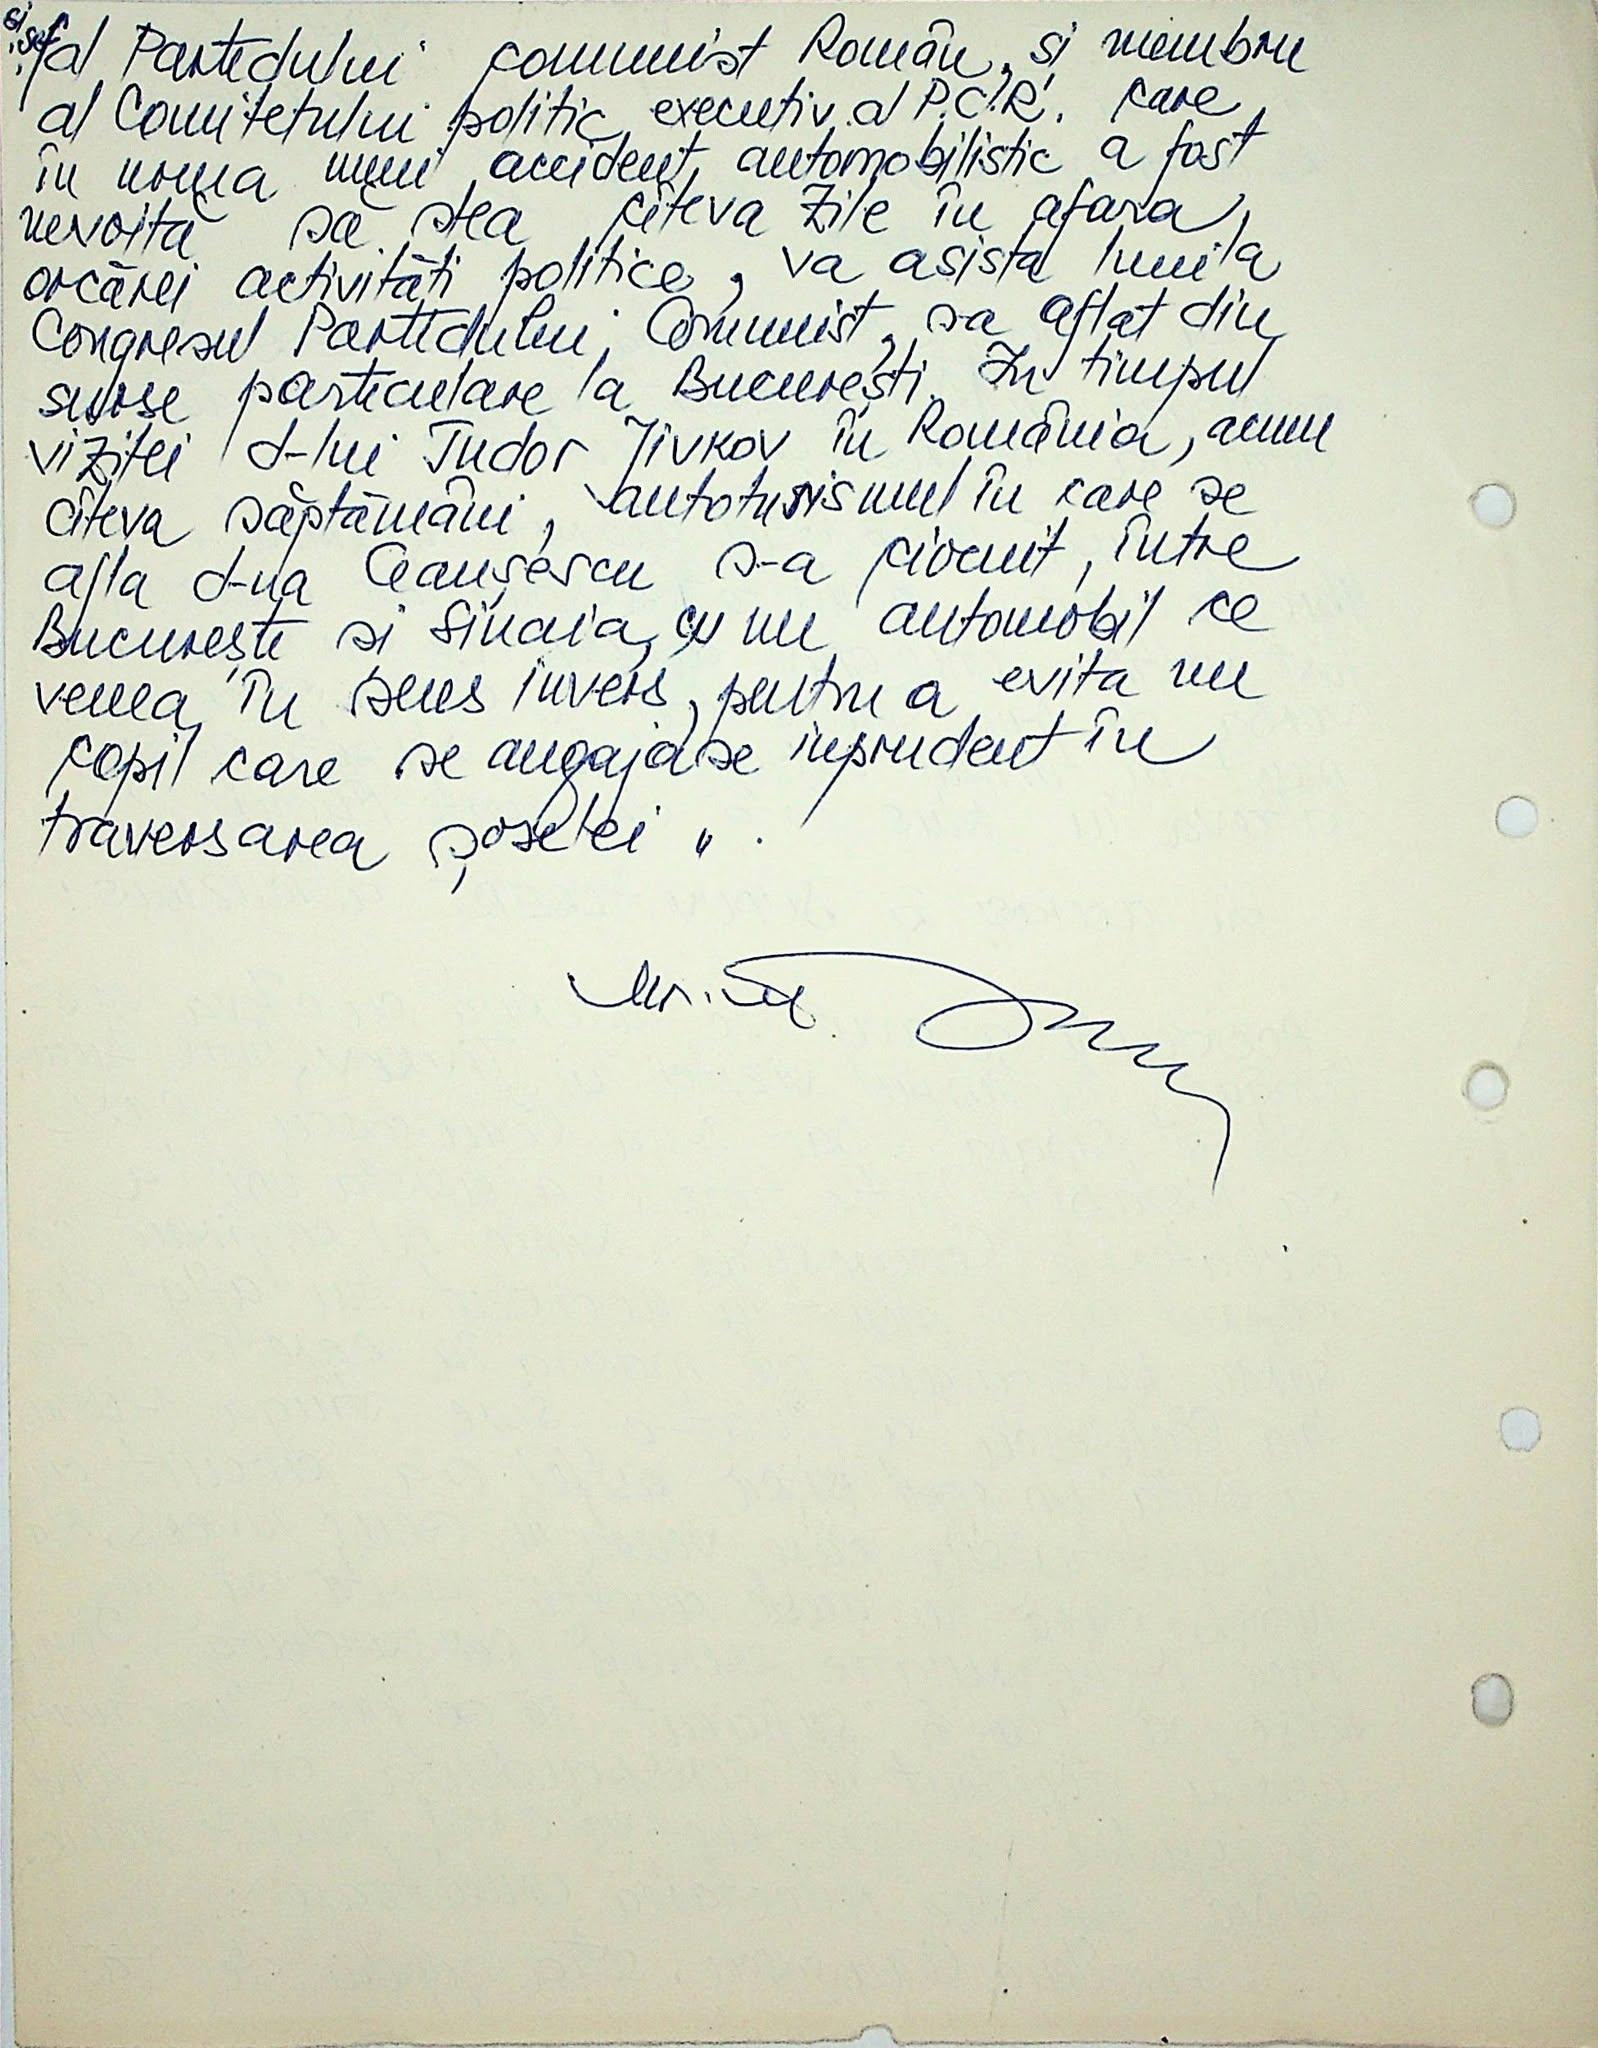 și șef
al Partidului comunist Român, și membru
al Comitetului politic executiv al P.C.R. care
în urma unui accident automobilistic a fost
nevoită să stea cîteva zile în afara
orcărei activități politice, va asista luni la
Congresul Partidului Comunist, sa aflat din
surse particulare la București. În timpul
vizitei d-lui Tudor Jivkov în România, acum
cîteva săptămâni, autoturismul în care se
afla d-na Ceaușescu s-a ciocnit, între
București și Sinaia, cu un automobil ce
venea în sens invers, pentru a evita un
copil care se angajase inprudent în
traversarea șoselei ".